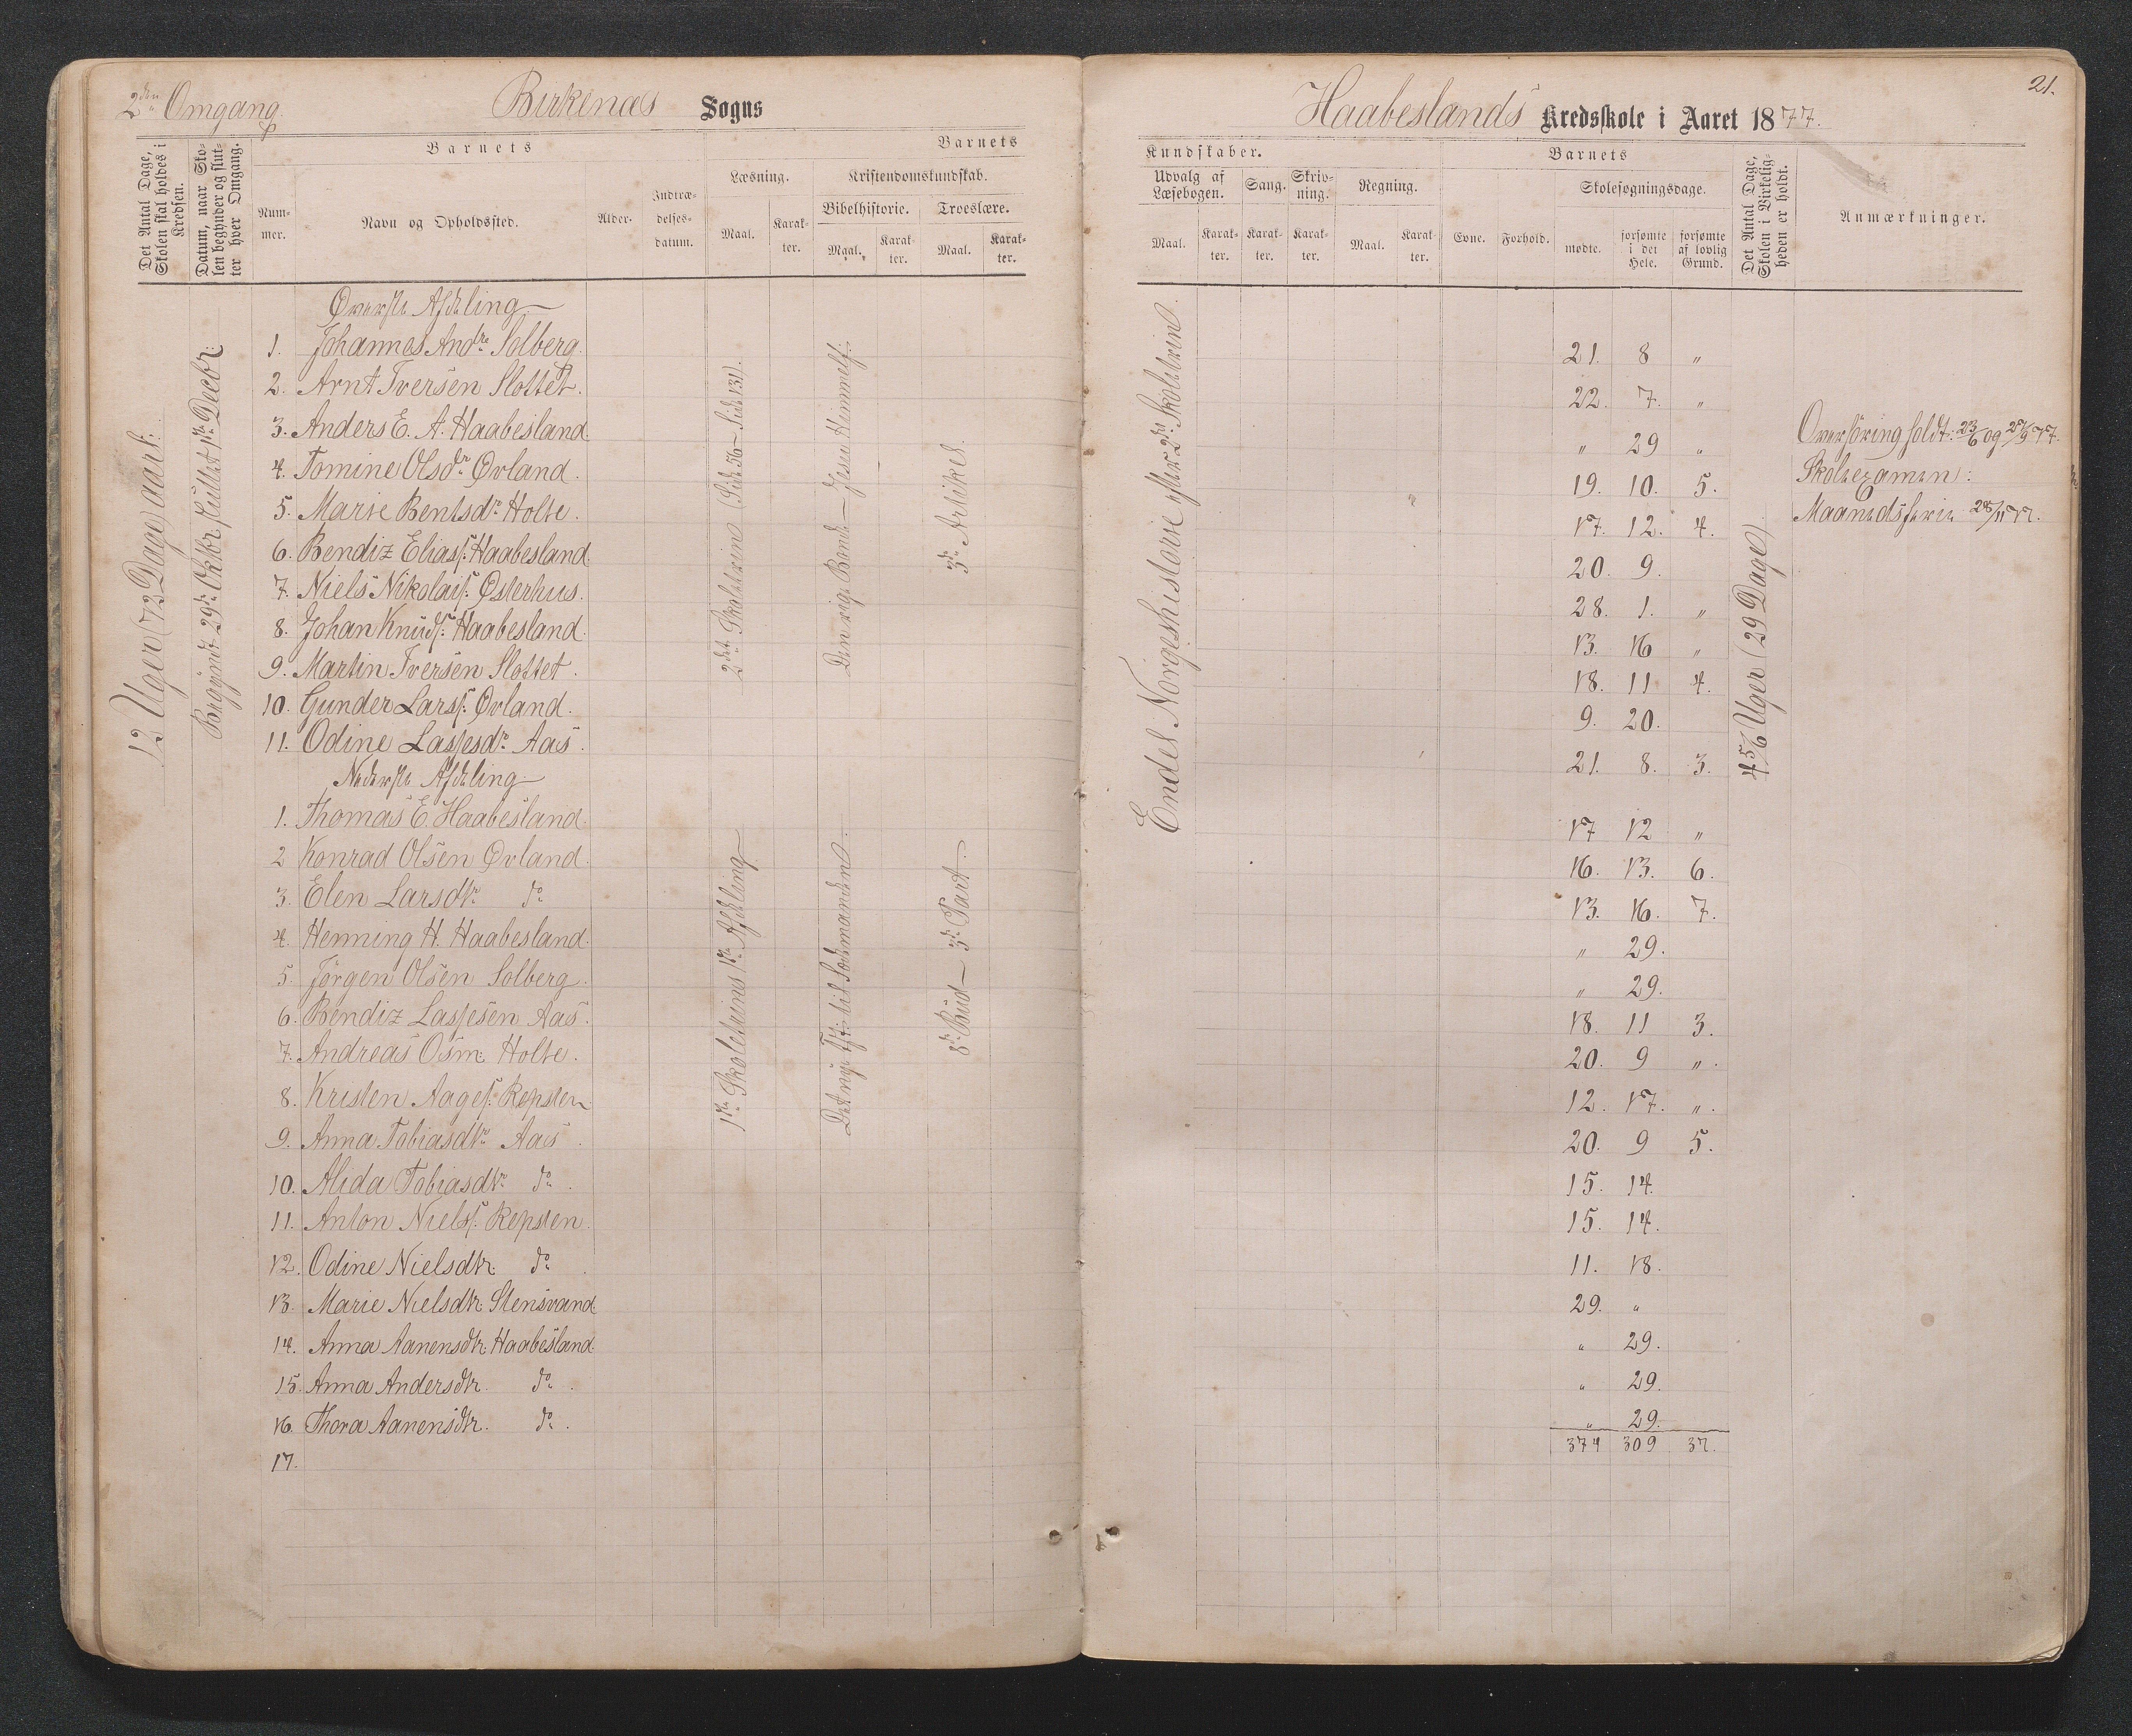 2den Omgang.
Birkenæs Sogns
Det Antal Dage, Skolen skal holdes i Kredsen.
Datum, naar Skolen begynder og slutter hver Omgang.
Barnets
Barnets
Nummer.
Navn og Opholdssted.
Alder.
Indtrædelsesdatum.
Læsning.
Kristendomskundskab.
Bibelhistorie.
Troeslære.
Maal.
Karakter.
Maal.
Karakter.
Maal.
Karakter.
12 Uger (72 Dage) aarl:
Begyndt 29de Oktbr sluttet 1ste Decbr.
Øverste Afdeling
1. Johannes Andre Solberg.
2. Arnt Iversen Slottet.
3. Anders E. A. Haabesland.
4. Tomine Olsdr Øvland.
5. Marie Bentsdr Holte.
6. Bendiz Eliass: Haabesland.
7. Niels Nikolais: Østerhus.
8. Johan Knuds: Haabesland.
9. Martin Iversen Slottet.
10. Gunder Larss: Øvland.
11. Odine Lassesdr Aas.
2det Skoletrin (Side 56 – Side 131).
Den rige Bonde – Jesu Himmelf:
3die Artikel.
Nederste Afdeling
1. Thomas E. Haabesland.
2 Konrad Olsen Øvland.
3. Elen Larsdtr do
4. Henning H. Haabesland.
5. Jörgen Olsen Solberg.
6. Bendiz Lassesen Aas.
7. Andreas Osm: Holte.
8. Kristen Aages: Repsten
9. Anna Tobiasdtr Aas.
10. Alida Tobiasdtr do.
11. Anton Nielss: Repsten.
12. Odine Nielsdtr. do.
13. Marie Nielsdtr. Stensvand.
14. Anna Aanensdtr. Haabesland.
15. Anna Andersdtr. do.
16. Thora Aanensdtr. do.
17.
1ste Skoletrins 1ste Afdeling
Det nye T/t: til Sædemanden.
8de Bud – 3die Part.
21.
Haabeslands Kredsskole i Aaret 1877.
Kundskaber.
Barnets
Udvalg af Læsebogen.
Sang.
Skrivning.
Regning.
Skolesøgningsdage.
Maal.
Karakter.
Karakter.
Karakter.
Maal.
Karakter.
Evne.
Forhold.
mødte.
forsømte i det Hele.
forsømte af lovlig Grund.
Det Antal Dage, Skolen i Virkeligheden er holdt.
Anmærkninger.
Endel Norgeshistorie efter 2det Skoletrin.
21. 8 "
22. 7. "
" 29 "
19. 10. 5.
17. 12. 4.
20. 9.
28. 1. "
13. 16 "
18. 11 4.
9. 20.
21. 8. 3.
17 12 "
16. 13. 6.
13. 16. 7.
" 29.
" 29.
18. 11 3.
20. 9 ".
12. 17. ".
20. 9 5.
15. 14.
15. 14.
11. 18.
29. "
" 29.
" 29.
" 29.
374 309 37.
4 5/6 Uger (29 Dage)
Overhöring holdt: 23/6 og 27/9 77.
Skoleexamen:
Maanedsferie 28/11 77.